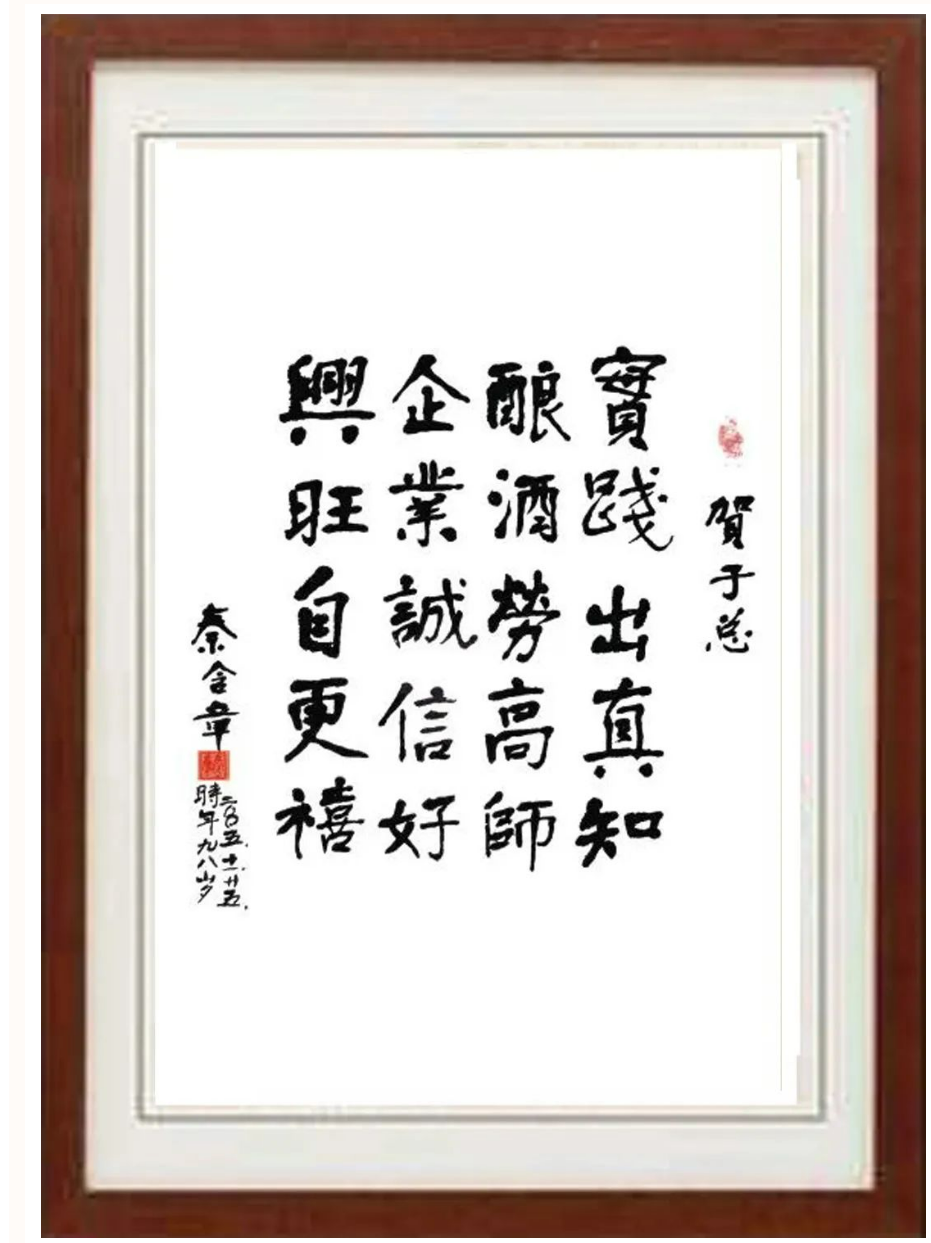 賀于总
實踐出真知
酿酒勞高師
企業誠信好
興旺自更禧
秦含章
二〇〇五.十一.廿五.
時年九八岁